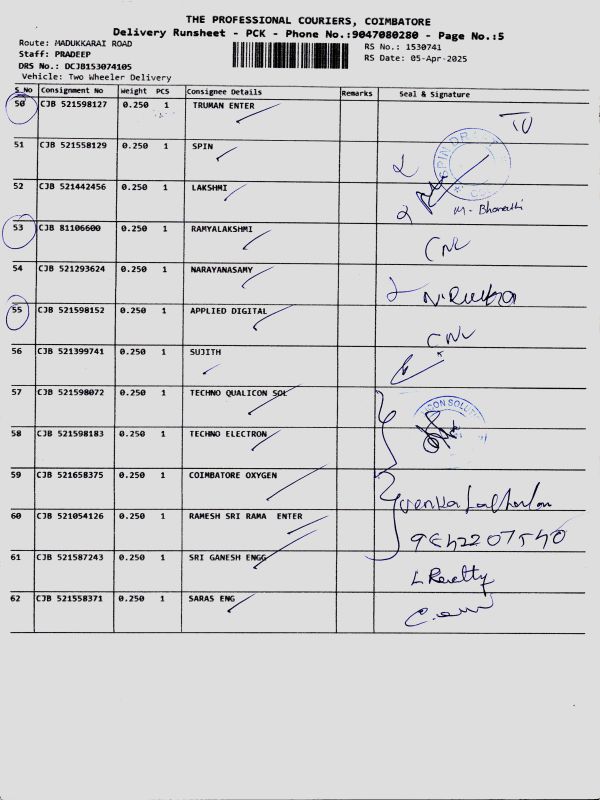 THE PROFESSIONAL COURIERS, COIMBATORE
Delivery Runsheet - PCK - Phone No.:9047080280 - Page No.:5
Route: MADUKKARAI ROAD
RS No.: 1530741
Staff: PRADEEP
RS Date: 05-Apr-2025
DRS No.: DCJB153074105
Vehicle: Two Wheeler Delivery
S No Consignment No Weight PCS Consignee Details Remarks Seal & Signature
50 CJB 521598127 0.250 1 TRUMAN ENTER
51 CJB 521558129 0.250 1 SPIN
52 CJB 521442456 0.250 1 LAKSHMI
M. Bharathi
53 CJB 81106600 0.250 1 RAMYALAKSHMI
CNL
54 CJB 521293624 0.250 1 NARAYANASAMY
55 CJB 521598152 0.250 1 APPLIED DIGITAL
CNL
56 CJB 521399741 0.250 1 SUJITH
57 CJB 521598072 0.250 1 TECHNO QUALICON SOL
58 CJB 521598183 0.250 1 TECHNO ELECTRON
59 CJB 521658375 0.250 1 COIMBATORE OXYGEN
60 CJB 521054126 0.250 1 RAMESH SRI RAMA ENTER
61 CJB 521587243 0.250 1 SRI GANESH ENGG
62 CJB 521558371 0.250 1 SARAS ENG